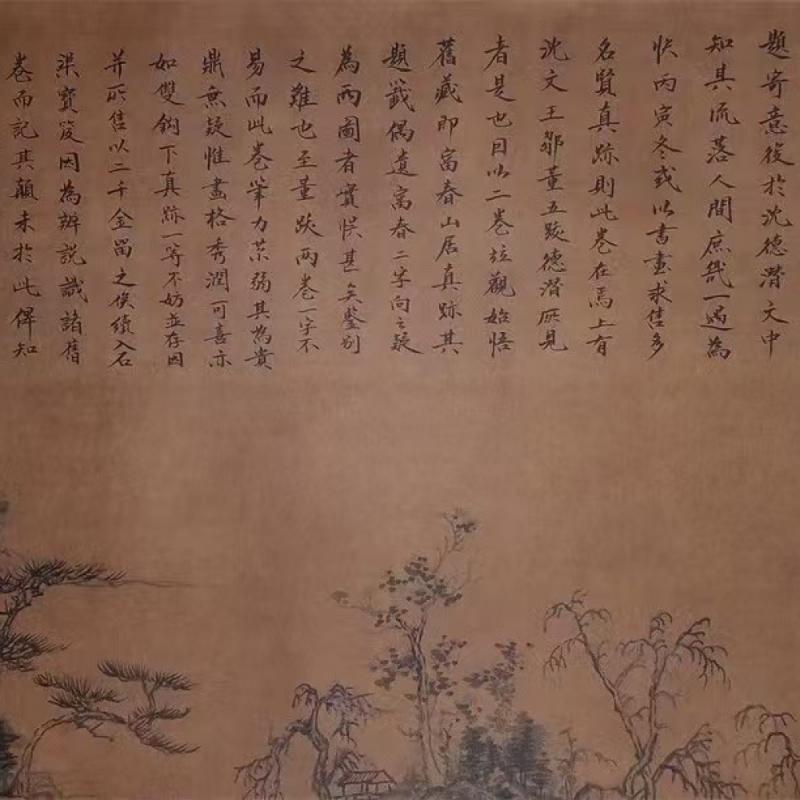 題寄意後於沈德潛文中
知其流落人間庶幾一遇為
快丙寅冬或以書畫求售多
名賢真跡則此卷在焉上有
沈文王鄒董五跋德潛所見
者是也因以二卷竝觀始悟
舊藏即富春山居真跡其
題籤偶遺富春二字向之疑
為兩圖者實悮甚矣鑒別
之難也至董跋兩卷一字不
易而此卷筆力苶弱其為贋
鼎無疑惟畫格秀潤可喜亦
如雙鉤下真跡一等不妨並存因
並所售以二千金留之俟續入石
渠寶笈因為辨說識諸舊
卷而記其顛末於此俾知